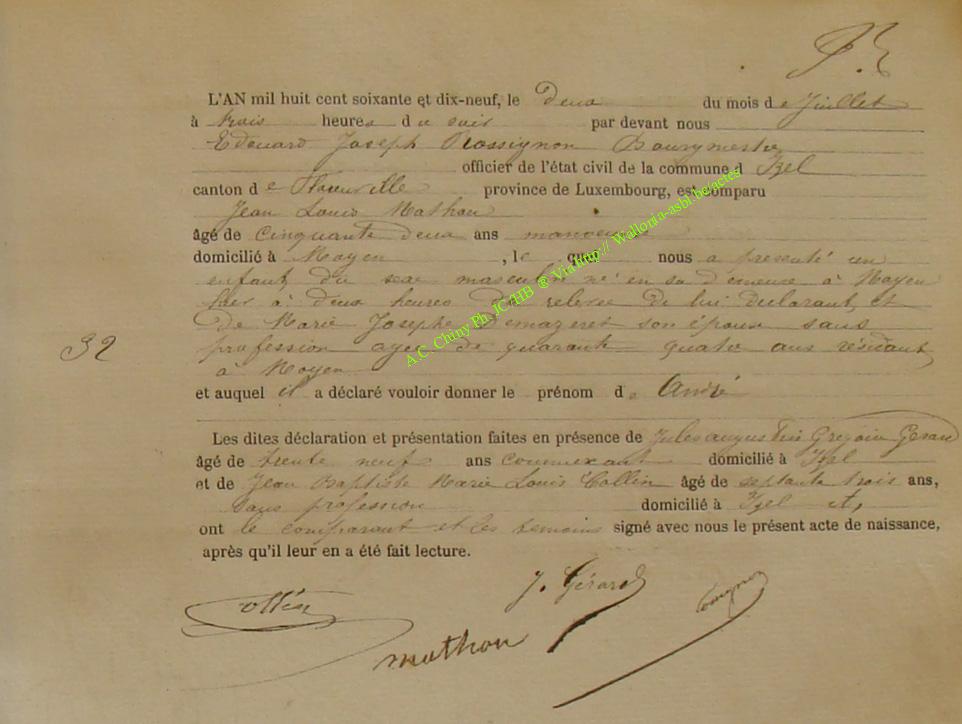 L'AN mil huit cent soixante et dix-neuf, le Deux du mois de Juillet
à trois heures du soir par devant nous
Edouard Joseph Rossignon Bourgmestre
officier de l'état civil de la commune d Izel
canton de Florenville province de Luxembourg, est comparu
Jean Louis Mathon
âgé de cinquante deux ans manoeuvre
domicilié à Moyen , le quel nous a présenté un
enfant du sexe masculin né en sa demeure à Moyen
hier à deux heures de relevée de lui Déclarant, et
de Marie Josephe Demazeret son épouse sans
32
profession agée de quarante quatre ans résidant
à Moyen
et auquel il a déclaré vouloir donner le prénom d André
Les dites déclaration et présentation faites en présence de Jules augustin Gregoire Gerard
âgé de trente neuf ans commerçant domicilié à Izel
et de Jean Baptiste Marie Louis Collin âgé de septante trois ans,
sans profession domicilié à Izel et,
ont le comparant et les temoins signé avec nous le présent acte de naissance,
après qu'il leur en a été fait lecture.
J. Gérard
Collin
mathon
A.C. Chiny Ph. JC/HB ® Via http:// Walloria-asbl.be/actes